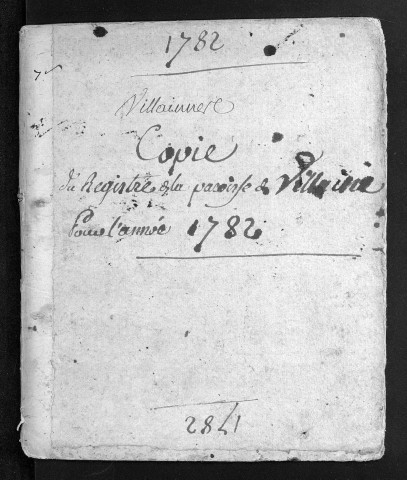 1782
Villainnes
Copie
du Registre de la paroisse de Villaine
Pour l'année 1782
1782